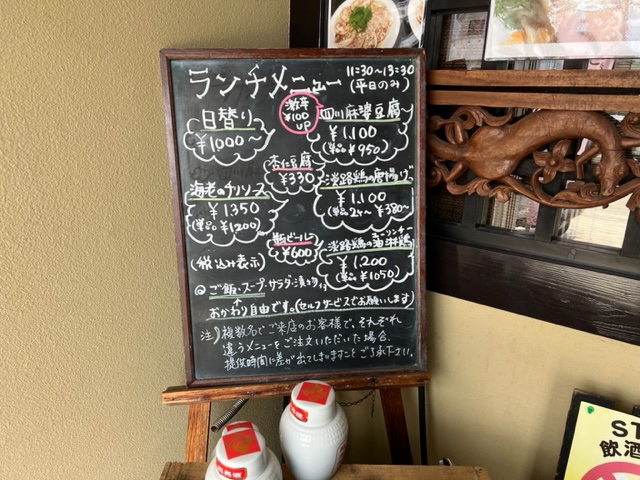 ランチメニュー
11:30~13:30
(平日のみ)
日替り
¥1000~
激辛
¥100
UP
四川麻婆豆腐
¥1,100
(単品¥950)
杏仁豆腐
¥330
海老のチリソース
¥1350
(単品¥1200)
淡路鶏の唐揚げ
¥1,100
(単品2ヶ~¥380~)
瓶ビール
¥600
淡路鶏の油淋鶏
ユーリンチー
¥1,200
(単品¥1050)
(税込み表示)
◎ご飯・スープ・サラダ・漬物は
おかわり自由です。(セルフサービスでお願いします)
注)複数名でご来店のお客様で、それぞれ
違うメニューをご注文いただいた場合、
提供時間に差が出てしまいますことをご了承下さい。
ST
飲酒